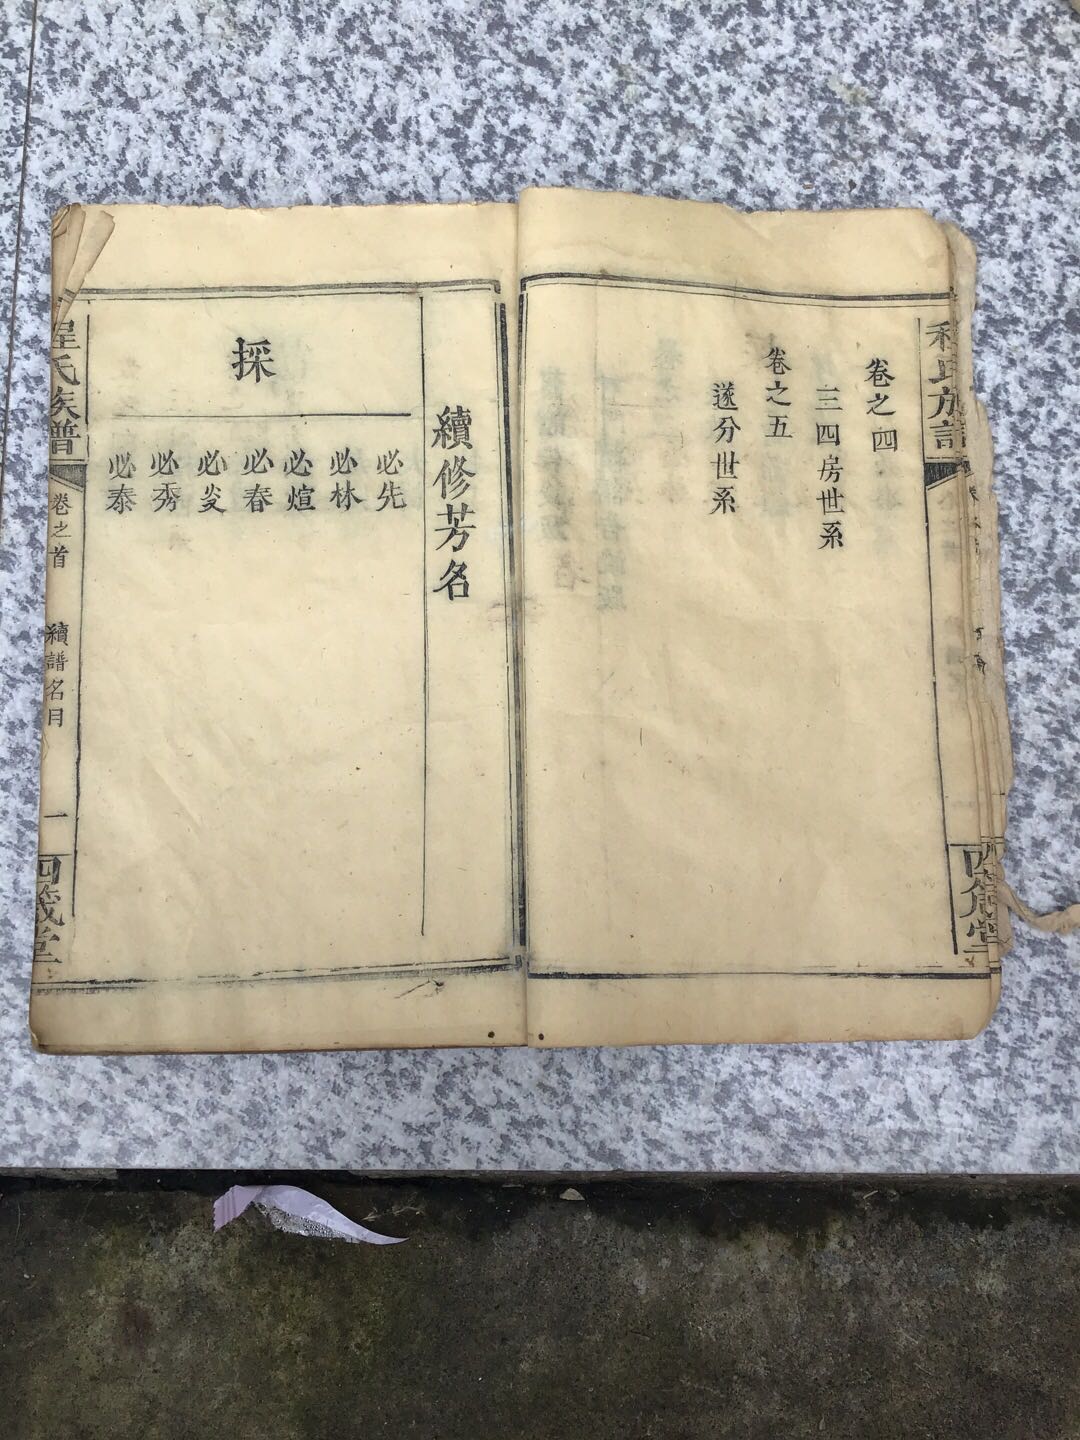 程氏族譜
四箴堂
卷之四
三四房世系
卷之五
遂分世系
續修芳名
採
必先
必林
必煊
必春
必炎
必秀
必泰
程氏族譜
卷之首
續譜名目
一
四箴堂